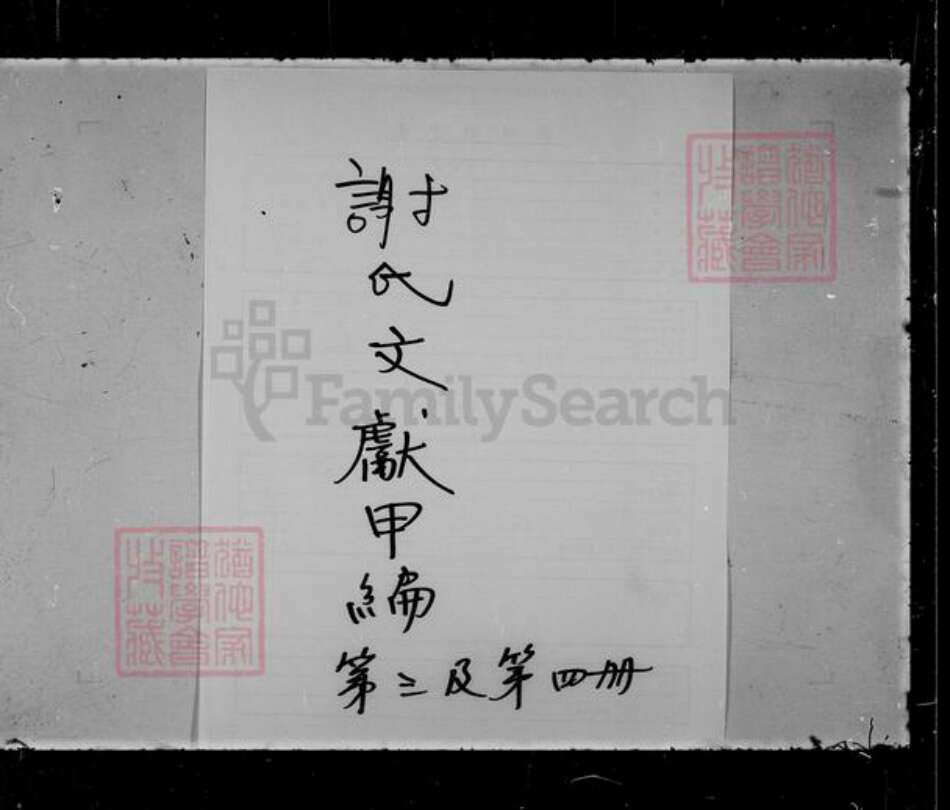 謝氏文獻甲編
第三及第四冊
FamilySearch
猶他家譜學會藏
猶他家譜學會藏